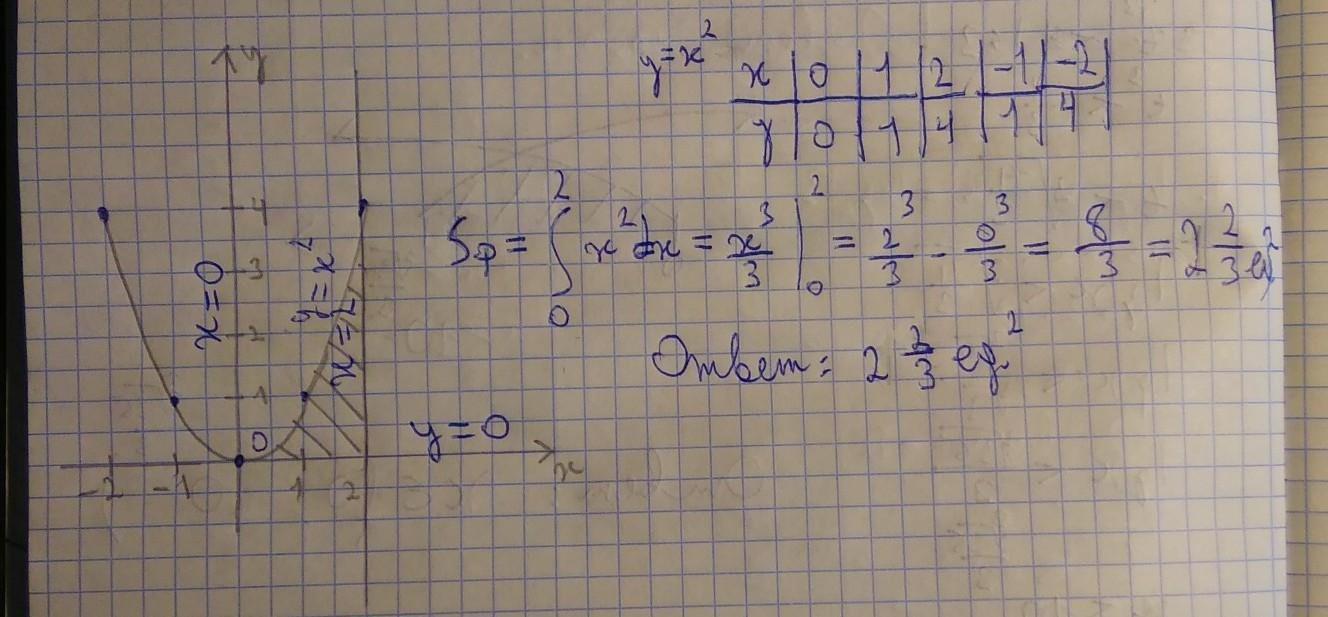 y=x²
x | 0 | 1 | 2 | -1 | -2
y | 0 | 1 | 4 | 1 | 4
Sф = ∫₀² x² dx = x³/3 |₀² = 2³/3 - 0³/3 = 8/3 = 2 2/3 ед²
Ответ: 2 2/3 ед²
y
4
3
2
1
x=0
y=x²
x=2
y=0
0
-2 -1 1 2
x